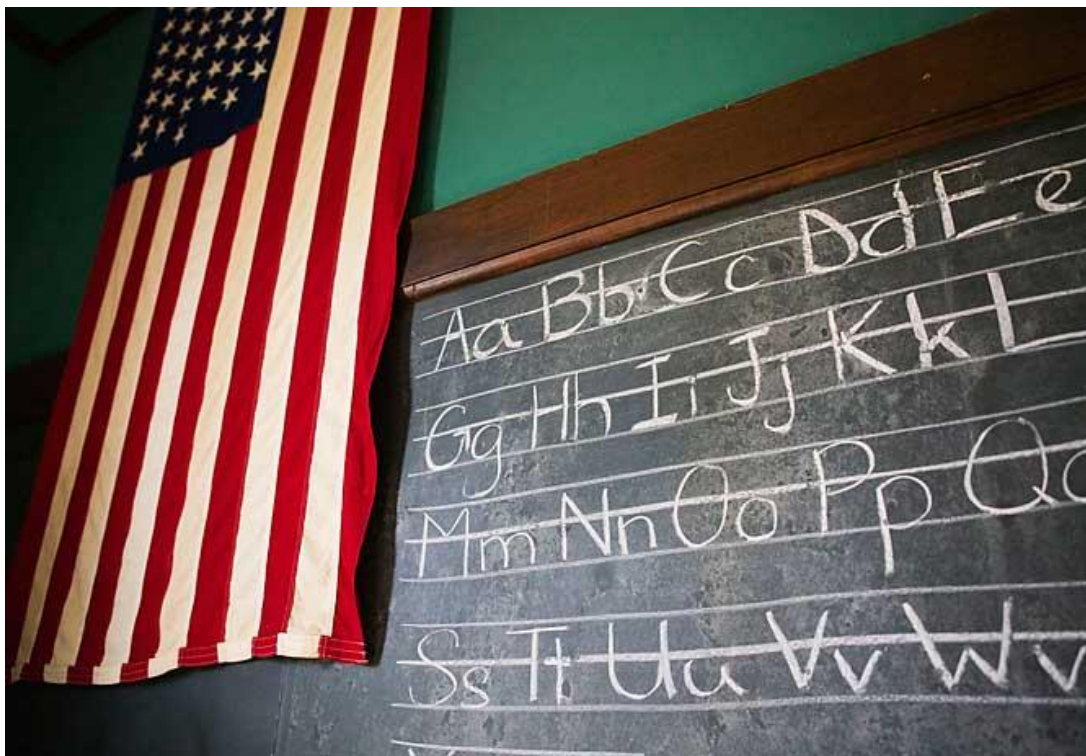 Aa Bb Cc Dd E e
Gg Hh Ii Jj Kk L
Mm Nn Oo Pp Q
Ss Tt Uu Vv W w